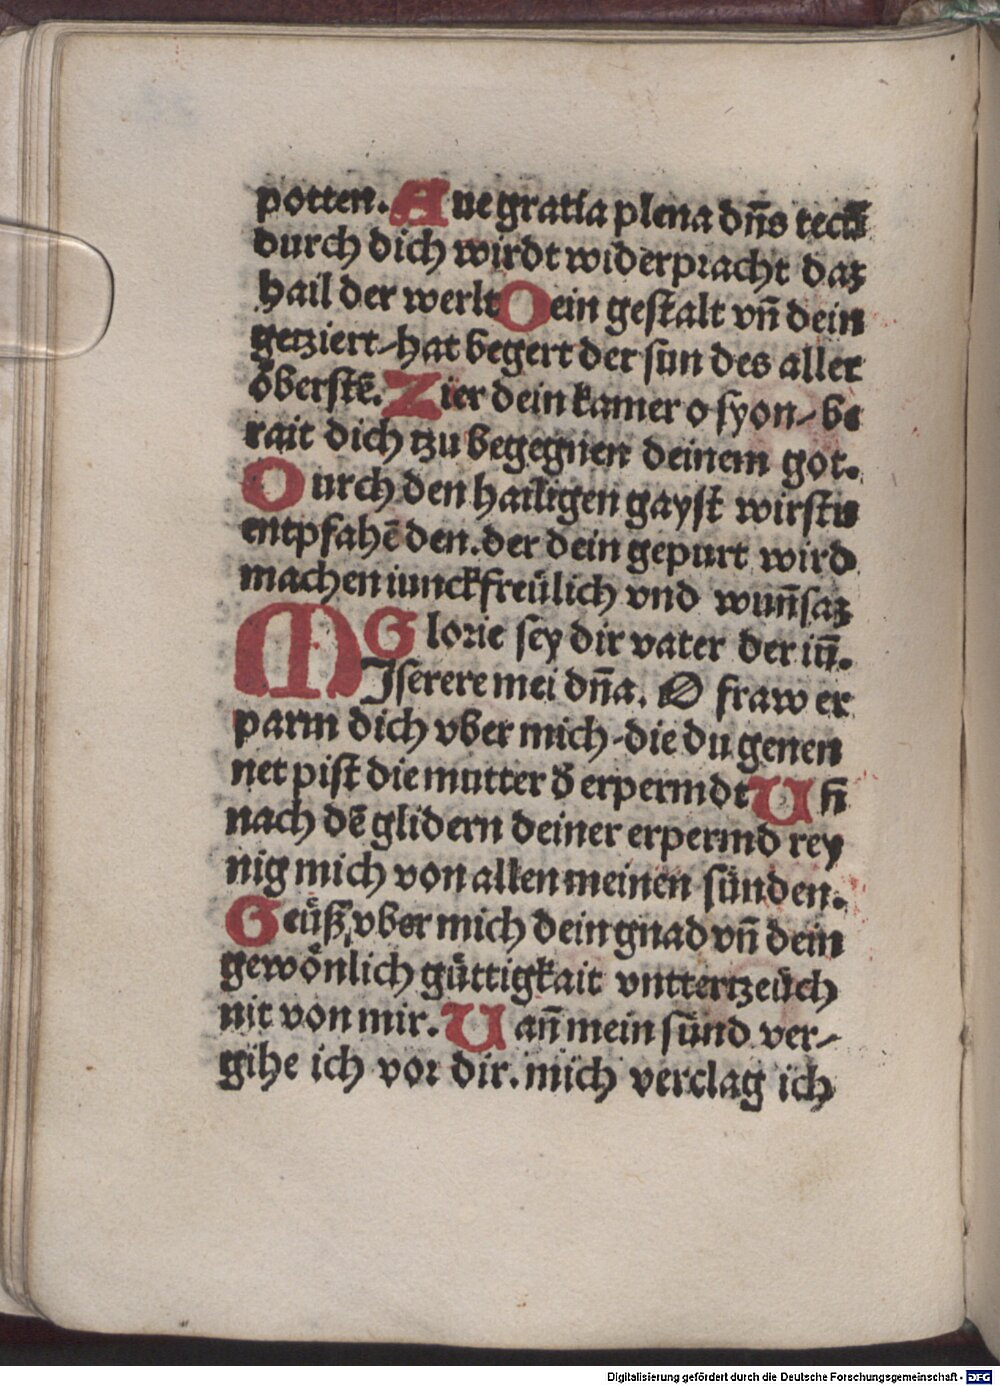 potten. Aue gratia plena dn̄s tecū
durch dich wirdt widerpracht daz
hail der werlt Dein gestalt vn̄ dein
getziert-hat begert der sun des aller
öberstē. Zier dein kamer o syon- be
rait dich tzu begegnen deinem got.
Durch den hailigen gayst wirstu
entpfahē den. der dein gepurt wird
machen iunckfreülich vnd wun̄saz
Glorie sey dir vater der in̄.
MIserere mei dn̄a. O fraw er
parm dich vber mich-die du genen
net pist die mutter d̄ erpermdt Vn̄
nach dē glidern deiner erpermd rey
nig mich von allen meinen sünden.
Geüß vber mich dein gnad vn̄ dein
gewönlich güttigkait vnttertzeüch
nit von mir. Van̄ mein sünd ver-
gihe ich vor dir. mich verclag ich
Digitalisierung gefördert durch die Deutsche Forschungsgemeinschaft - DFG